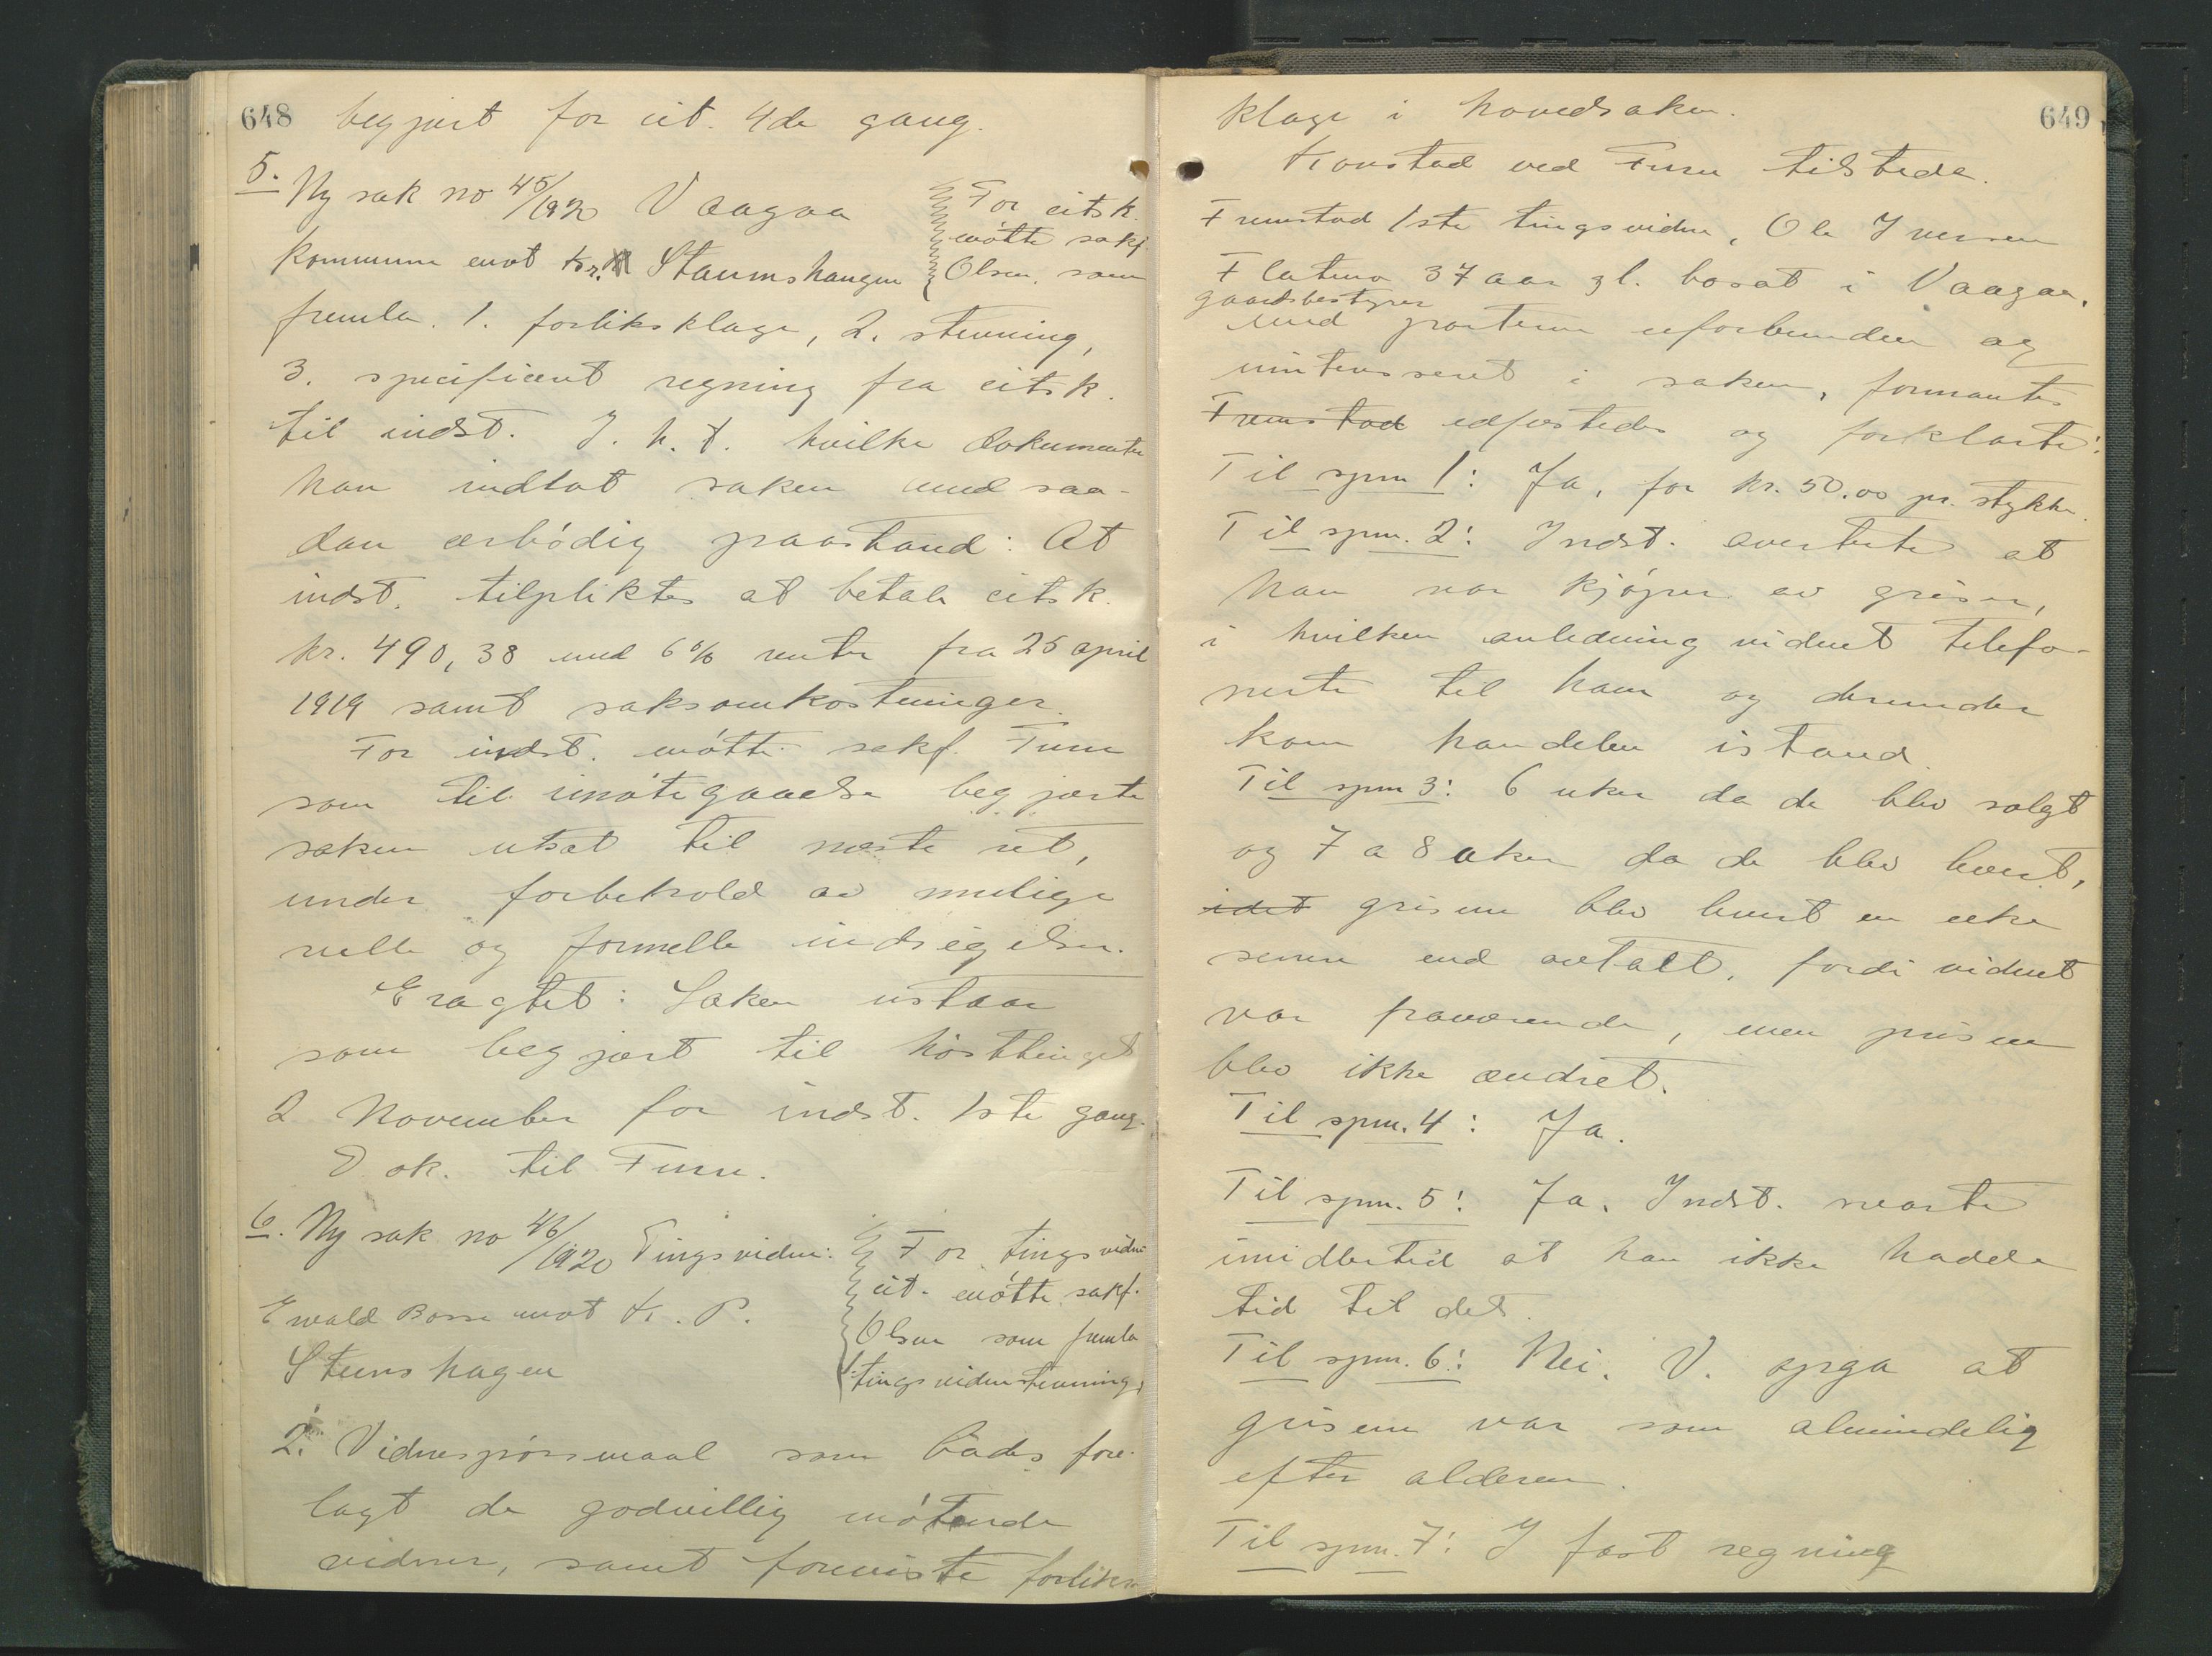 648 begjært for cit. 4de gang.
5. Ny sak no 45/1920 Vaagaa
kommune mot Kr. Staumshaugen
For citsk.
møtte sakf.
Olsen, som
fremla. 1. forliksklage, 2. stevning,
3. specificert regning fra citsk.
til indst. I. h. t. hvilke dokumenter
han indlot saken med saa-
dan ærbødig paastand: At
indst. tilpliktes at betale citsk.
kr. 490,38 med 6% renter fra 25 april
1919 samt saksomkostninger.
For indst. møtte sakf. Furu
som til imøtegaaelse begjærte
saken utsat til næste ret,
under forbehold av mulige
relle og formelle indsigelser.
Eragtet: Saken utstaar
som begjært til høsttinget
2 November for indst. 1ste gang.
Dok. til Furu.
6. Ny sak no 46/1920 Tingsvidne:
Ewald Bosse mot Kr. P.
Stuns hagen
For tingsvidne
cit. møtte sakf.
Olsen som fremla
1. tingsvidnestevning,
2. Vidnespørsmaal som bades fore-
lagt de godvillig møtende
vidner, samt foreviste forliks-
649
klage i hovedsaken.
Konstad ved Furu tilstede.
Fremstod 1ste tingsvidne, Ole Iversen
Flatmo 37 aar gl. bosat i Vaagaa,
gaardsbestyrer
med parterne uforbunden og
uinteresseret i saken, formantes
Fremstod edfæstedes og forklarte:
Til spm 1: Ja, for kr. 50.00 pr. stykke.
Til spm. 2: Indst. averterte at
han var kjøper av griser,
i hvilken anledning vidnet telefo-
nerte til ham og derunder
kom handelen istand.
Til spm 3: 6 uker da de blev solgt
og 7 a 8 uker da de blev levert,
idet grisene blev levert en uke
senere end avtalt, fordi vidnet
var fraværende, men prisen
blev ikke ændret.
Til spm. 4: Ja.
Til spm. 5: Ja. Indst. svarte
imidlertid at han ikke hadde
tid til det.
Til spm. 6: Nei. V. opga at
grisene var som almindelig
efter alderen.
Til spm. 7: I fast regning